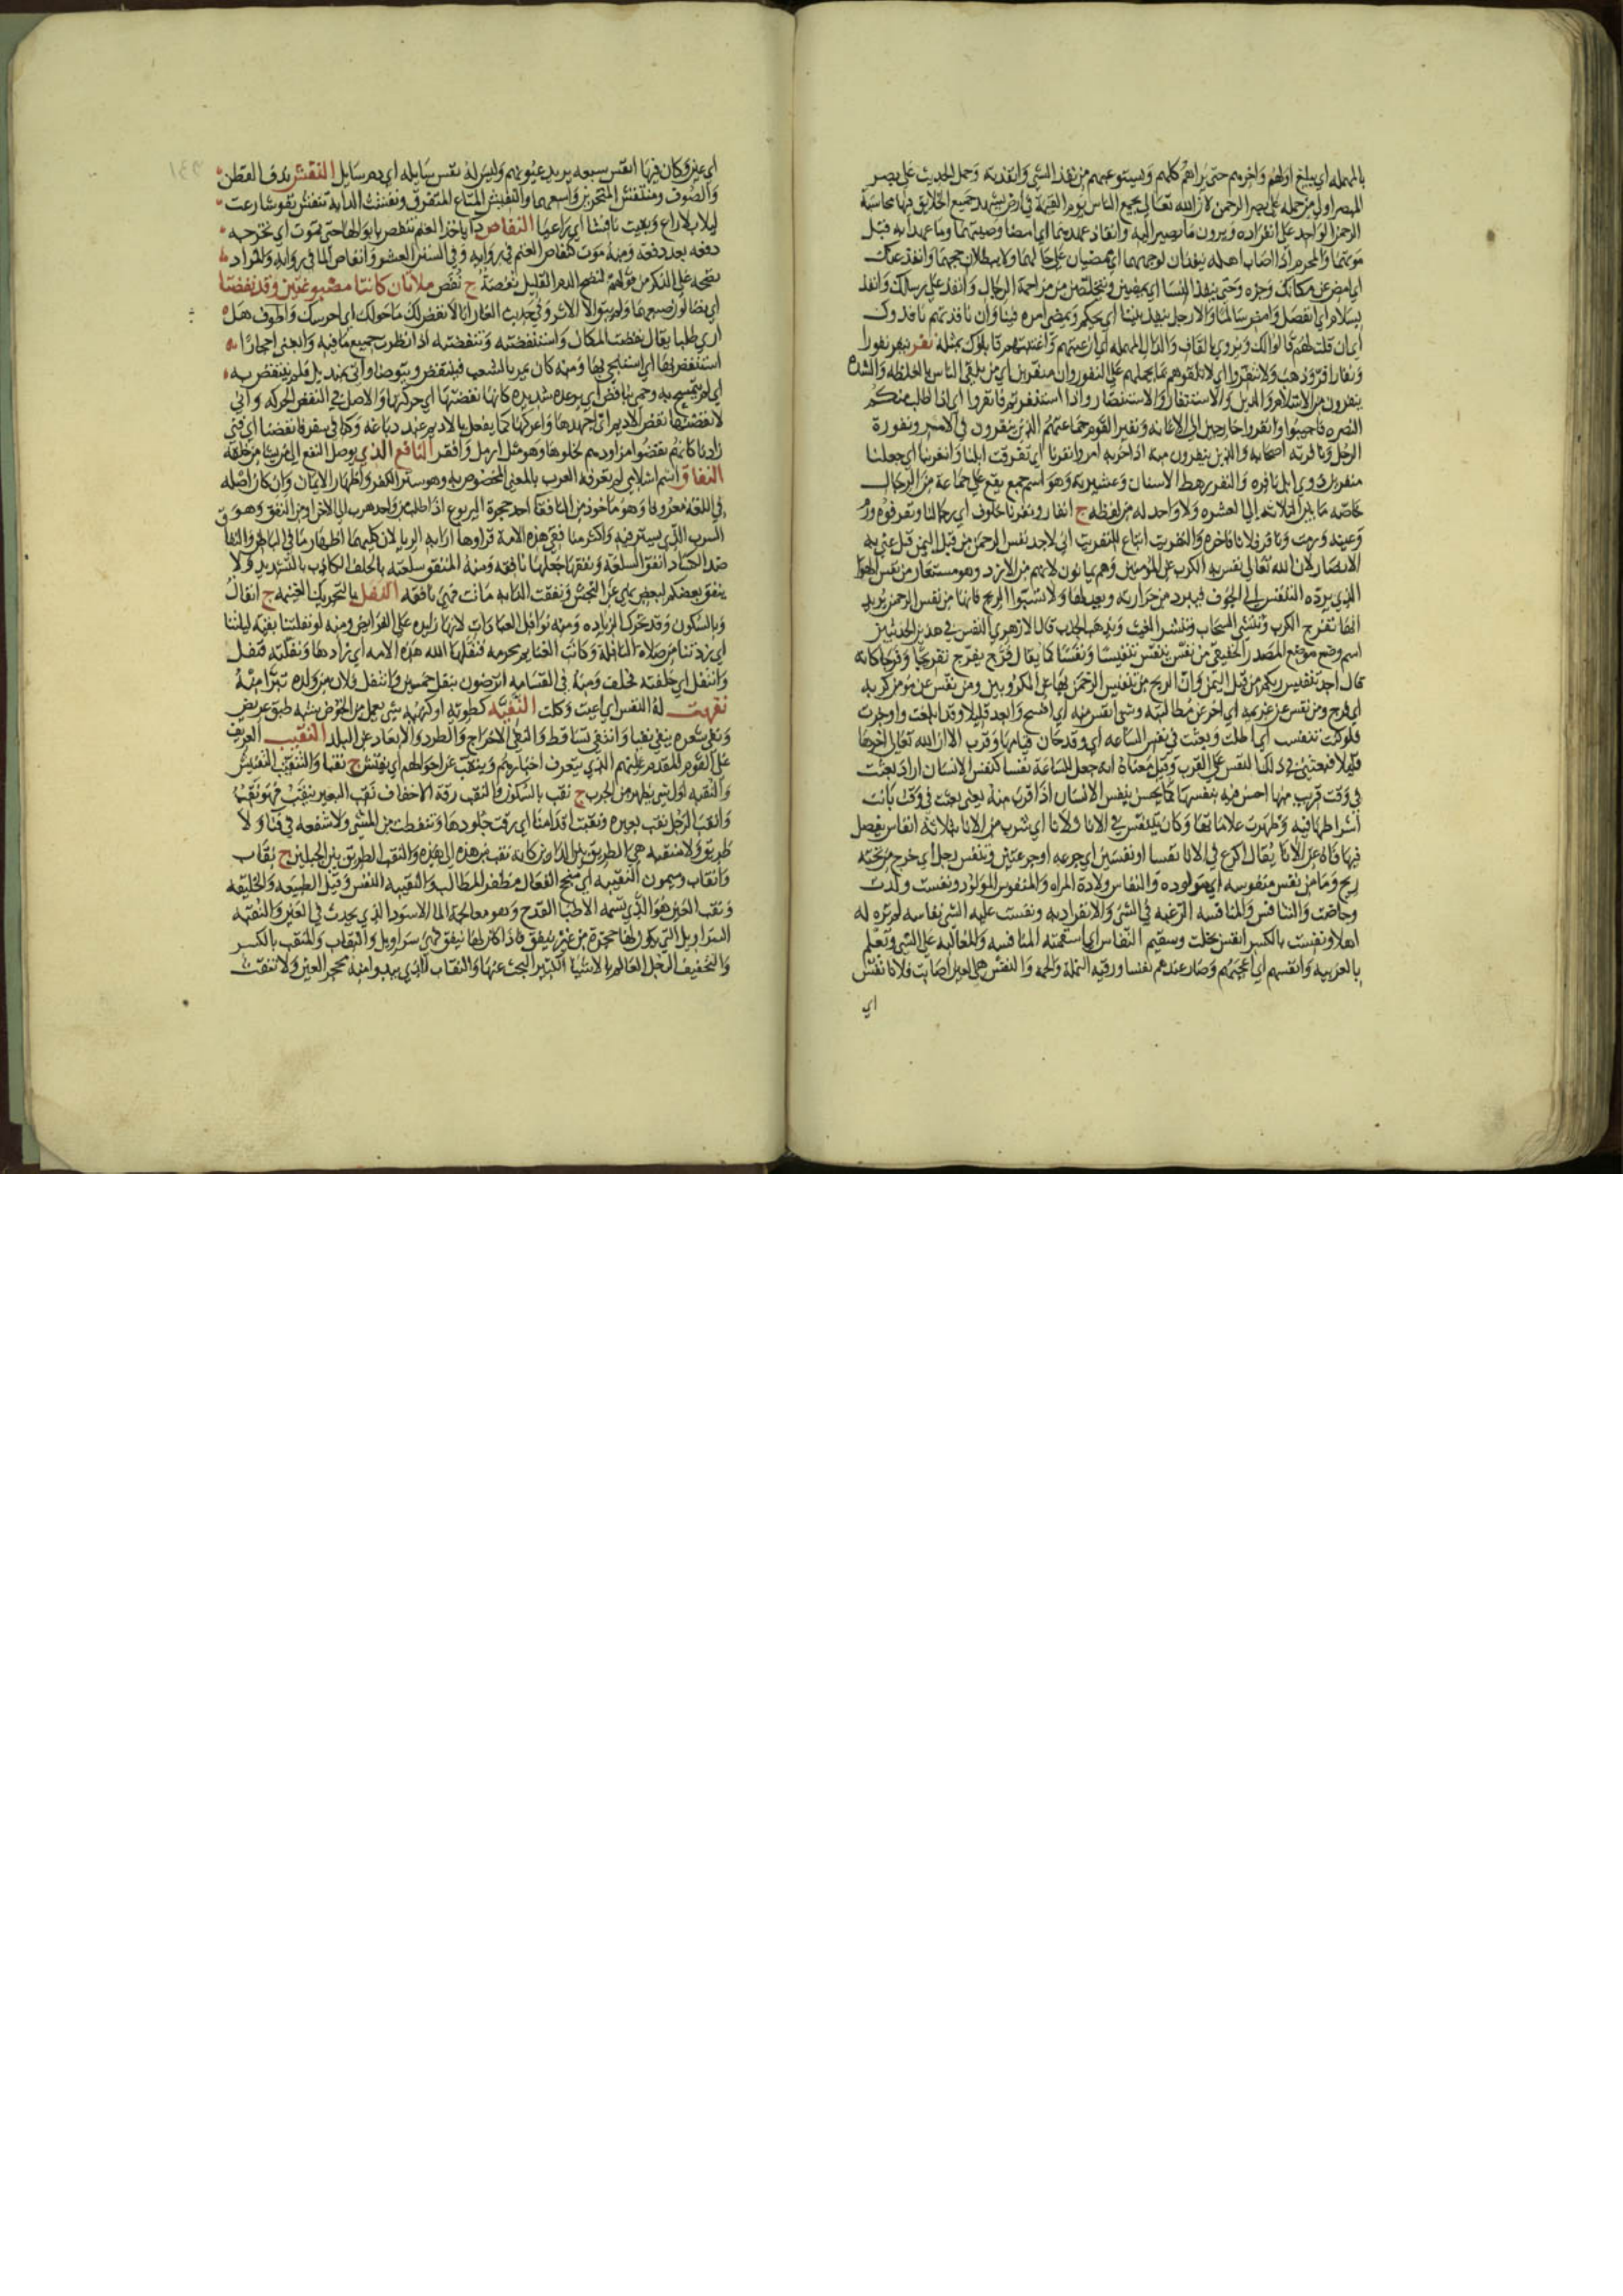 بالمهمله اي يبلغ اولهم واخرهم حتى يراهم كلهم ويستوعبهم من نفذ الشي وانفذته وحمل الحديث على بصر
المبصر اولى من حمله على بصر الرحمن لان الله تعالى يجمع الناس يوم القيمة في ارض يشهد جميع الخلايق فيها محاسبة
الرحمن الواحد على انفراده ويرون ما يصير اليه وانفاذ عهدهما اي امضا وصيتهما وما عهدا به قبل
موتهما والمحرم اذا اصاب اهله ينفذان لوجههما اي يمضيان على حالهما ولا يبطلان حجهما وانفذ عنك
اي امض عن مكانك وجزه وحتى ينفذ النسا اي يمضين ويتخلصن من مزاحمة الرجال وانفذ على رسلك وانفذ
بسلام اي انفصل وامض سالما والا رجل ينفذ بيننا اي يحكم ويمضي امره فينا وان نافذتهم نافذوك
اي ان قلت لهم قالوا لك ويروى بالقاف والدال المهمله اي ان عبتهم واغتبتهم قابلوك بمثله نفر ينفر نفورا
ونفارا فر وذهب ولا تنفروا اي لا تلقوهم بما يحملهم على النفور وان منفرين اي من يلقى الناس بالغلظه والشده
ينفرون من الاسلام والدين والاستنفار والاستنصار واذا استنفرتم فانفروا اي اذا طلب منكم
النصره فاجيبوا وانفروا خارجين الى الاعانه ونفير القوم جماعتهم الذين ينفرون في الامر ونفورة
الرجل ونافرته اصحابه والذين ينفرون معه اذا حزبه امر وانفرنا اي تفرقت ابلنا وانفر بنا اي جعلنا
منفرين ذوي ابل نافره والنفر رهط الانسان وعشيرته وهو اسم جمع يقع على جماعة من الرجال
خاصه ما بين الثلاثه الى العشره ولا واحد له من لفظه ج انفار ونفرنا خلوف اي رجالنا ونفر فوه ورم
الانصار لان الله تعالى نفس بهم الكرب عن المؤمنين وهم يمانون لانهم من الازد وهو مستعار من نفس الهوا
الذي يرده التنفس الى الجوف فيبرد من حرارته ويعدلها ولا تسبوا الريح فانها من نفس الرحمن يريد
انها تفرج الكرب وتنشي السحاب وتنشر الغيث وتذهب الجدب قال الازهري النفس في هذين الحديثين
اسم وضع موضع المصدر الحقيقي من نفس ينفس تنفيسا ونفسا كما يقال فرج يفرج تفريجا وفرجا كانه
قال اجد تنفيس ربكم من قبل اليمن وان الريح من تنفيس الرحمن بها عن المكروبين ومن نفس عن مؤمن كربه
اي فرج ومن نفس عن غريمه اي اخر عن مطالبته وشي انفس منه اي افسح وابعد قليلا وقد ابلغت واوجزت
فلو كنت تنفست اي اطلت وبعثت في نفس الساعه اي وقد حان قيامها وقرب الا ان الله تعالى اخرها
قليلا فبعثني في ذلك النفس على القرب وقيل معناه انه جعل للساعة نفسا كنفس الانسان اراد بعثت
في وقت قريب منها احس فيه بنفسها كما يحس بنفس الانسان اذا قرب منه يعني بعثت في وقت بانت
اشراطها فيه وظهرت علاماتها وكان يتنفس في الانا ثلاثا اي شرب من الانا بثلاثة انفاس يفصل
فيها فاه عن الانا يقال اكرع في الانا نفسا او نفسين اي جرعه او جرعتين وتنفس رجل اي خرج من تحته
ريح وما من نفس منفوسه اي مولوده والنفاس ولادة المراه والمنفوس المولود ونفست ولدت
وحاضت والتنافس والمنافسه الرغبه في الشي والانفراد به ونفست عليه الشي نفاسه لم تره له
اهلا ونفست بالكسر انفس بخلت وسقيم النفاس اي اسقمته المنافسه والمغالبه على الشي وتعلم
بالعربيه وانفسهم اي اعجبهم وصار عندهم نفيسا ورقيه النملة والحمه والنفس هي العين اصابت فلانا نفس
اي
اي عين وكان فيها انفس سبعه يريد عيونهم وليس له نفس سايله اي دم سايل النفش ندف القطن
والصوف ومنتفش المنخرين واسعهما والتنفيش المتاع المتفرق ونفشت الدابة تنفش نفوشا رعت
ليلا بلا راع وبقيت نافشا اي راعيا النفاص دا ياخذ الغنم تنفص بابوالها حتى تموت اي تخرجه
دفعه بعد دفعة ومنه موت كنفاص الغنم في روايه وفي السنن العشر وانتفاص الما في روايه والمراد
نضحه على الذكر من قولهم لنضح الدم القليل نفصة ج نفص ملاتان كانتا مصبوغتين وقد نفضتا
اي نصل لون صبغهما ولم يبق الا الاثر وفي حديث الغار انا انفض لك ما حولك اي احرسك واطوف هل
ارى طلبا يقال نفضت المكان واستنفضته وتنفضته اذا نظرت جميع ما فيه وابغني احجارا
استنفض بها اي استنجي بها ومنه كان يمر بالشعب فينتفض ويتوضا واتي بمنديل فلم ينتفض به
اي لم يتمسح به وحمى بنافض اي برعده شديده كانها نفضتها اي حركتها والاصل في النفض الحركه واني
لانفضنها نفض الاديم اي اجهدها واعركها كما يفعل بالاديم عند دباغه وكنا في سفر فانفضنا اي فني
زادنا كانهم نفضوا مزاودهم لخلوها وهو مثل ارمل وافقر النافع الذي يوصل النفع الى من يشا من خلقه
النفاق اسم اسلامي لم تعرفه العرب بالمعنى المخصوص به وهو ستر الكفر واظهار الايمان وان كان اصله
في اللغة معروفا وهو ماخوذ من النافقا احد جحرة اليربوع اذا طلب من واحد هرب الى الاخر او من النفق وهو
السرب الذي يستتر فيه واكثر منافقي هذه الامة قراوها اراد به الريا لان كليهما اظهار ما في الباطن والنفاق
ضد الكساد انفق السلعة ونفقها جعلها نافقه ومنه المنفق سلعته بالحلف الكاذب بالتشديد ولا
ينفق بعضكم لبعض نهي عن النجش ونفقت الدابه ماتت فهي نافقه النفل بالتحريك الغنيمه ج انفال
وبالسكون وقد تحرك الزياده ومنه نوافل العبادات لانها زايده على الفرايض ومنه لو نفلتنا بقية ليلتنا
اي زدتنا من صلاة النافلة وكانت الغنايم محرمه فنفلها الله هذه الامه اي زادها ونفلته فنفل
وانتفل اي حلفته فحلف ومنه في القسامه اترضون بنفل خمسين وانتفل فلان من ولده تبرا منه
نفهت له النفس اي اعيت وكلت النفية كطويه او كنهيه شي يعمل من الخوص شبه طبق عريض
ونفى شعره ينفي نفيا وانتفى تساقط والنفي الاخراج والطرد والابعاد عن البلد النقيب العريف
على القوم المقدم عليهم الذي يتعرف اخبارهم وينقب عن احوالهم اي يفتش ج نقبا والتنقيب التفتيش
والنقبه اول شي يظهر من الجرب ج نقب بالسكون والنقب رقة الاخفاف نقب البعير ينقب فهو نقب
وانقب الرجل نقب بعيره ونقبت اقدامنا اي رقت جلودها وتنفطت من المشي ولا شفعه في فنا ولا
طريق ولا منقبه هي الطريق بين الدارين كانه نقب من هذه الى هذه والنقب الطريق بين الجبلين ج نقاب
وانقاب وميمون النقيبه اي منجح الفعال مظفر المطالب والنقيبه النفس وقيل الطبيعه والخليقه
ونقب العين هو الذي تسمه الاطبا القدح وهو معالجة الما الاسود الذي يحدث في العين والنقبه
السراويل التي يكون لها حجزة من غير نيفق فاذا كان لها نيفق فهي سراويل والنقاب والمنقب بالكسر
والتخفيف الرجل العالم بالاشيا الكثير البحث عنها والنقاب الذي يبدو منه محجر العين ولا تنقث